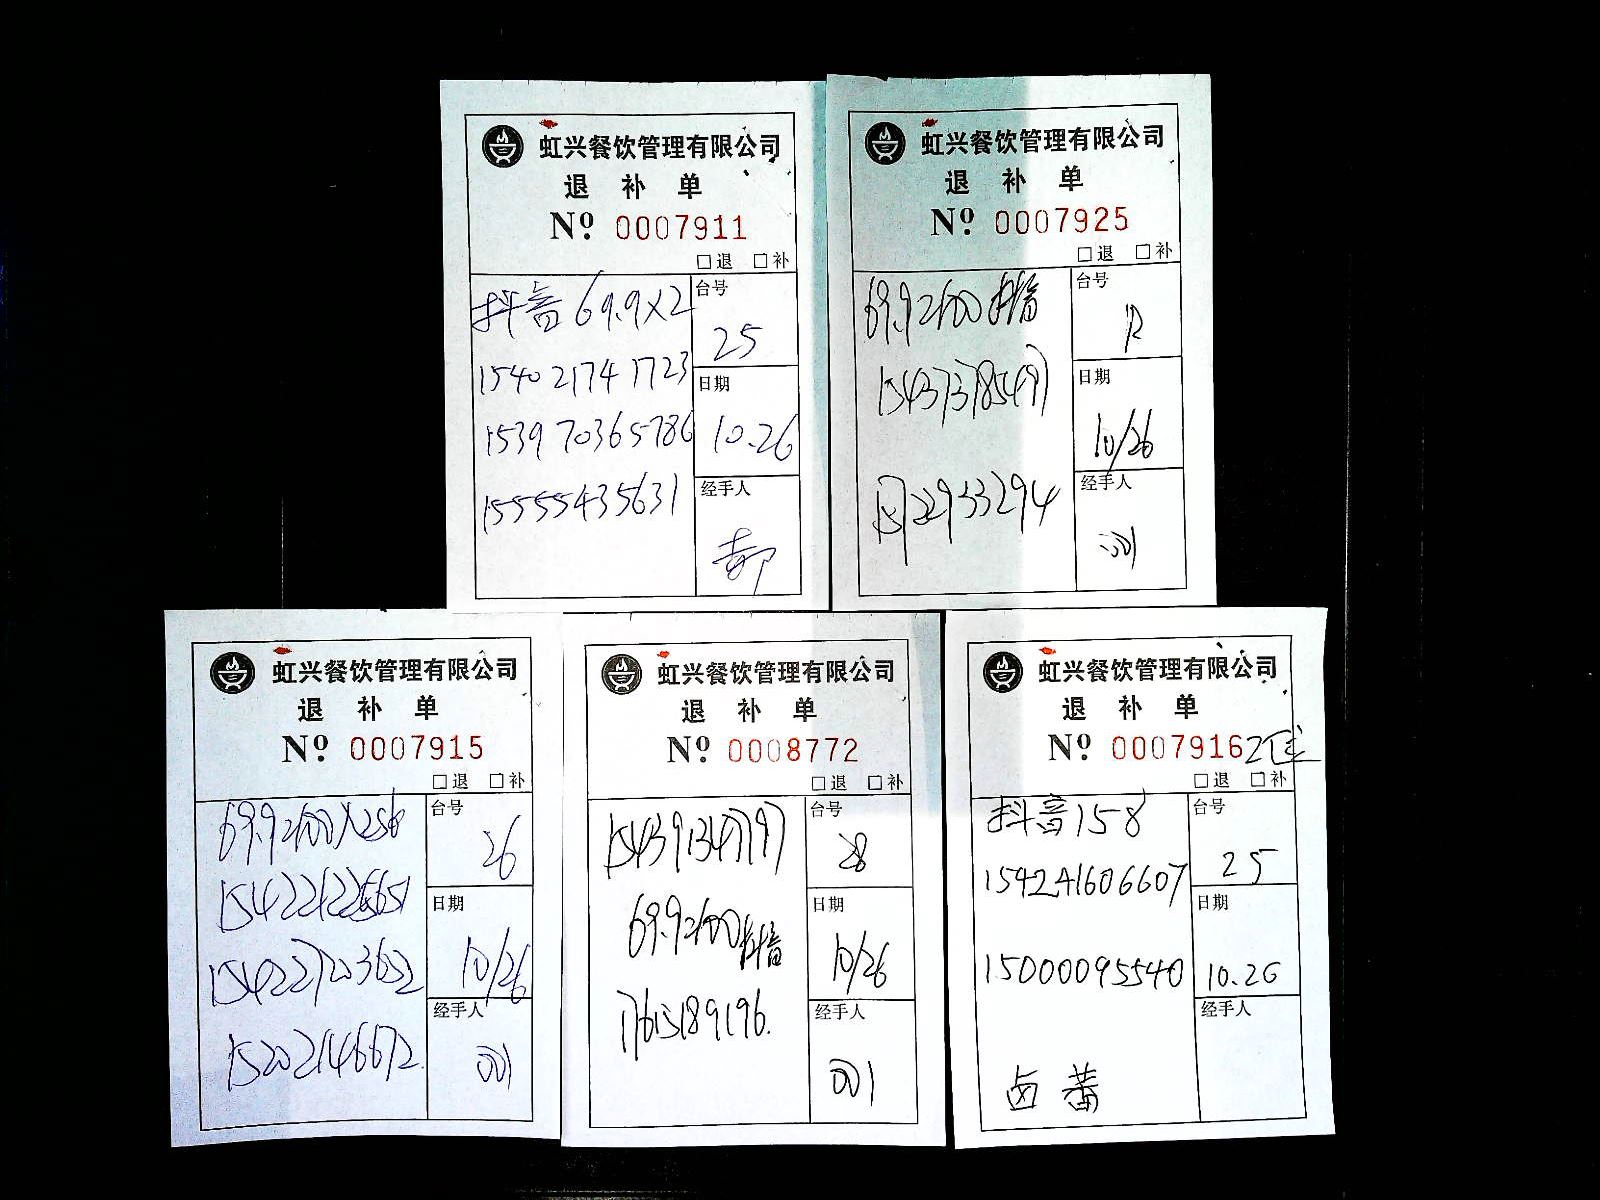 虹兴餐饮管理有限公司
退 补 单
Nº 0007911
□退 □补
抖音 69.9X2
台号
25
15402174 1723
日期
153970365786
10.26
15555435631
经手人
虹兴餐饮管理有限公司
退 补 单
Nº 0007925
□退 □补
69.92100 抖音
台号
日期
10/26
经手人
虹兴餐饮管理有限公司
退 补 单
Nº 0007915
□退 □补
台号
26
日期
154227203652
10/26
经手人
15202146672
001
虹兴餐饮管理有限公司
退 补 单
Nº 0008772
□退 □补
台号
28
日期
69.92100抖音
10/26
17615189196.
经手人
001
虹兴餐饮管理有限公司
退 补 单
Nº 0007916
□退 □补
抖音158
台号
25
154241606607
日期
15000095540
10.26
经手人
卤 蕃